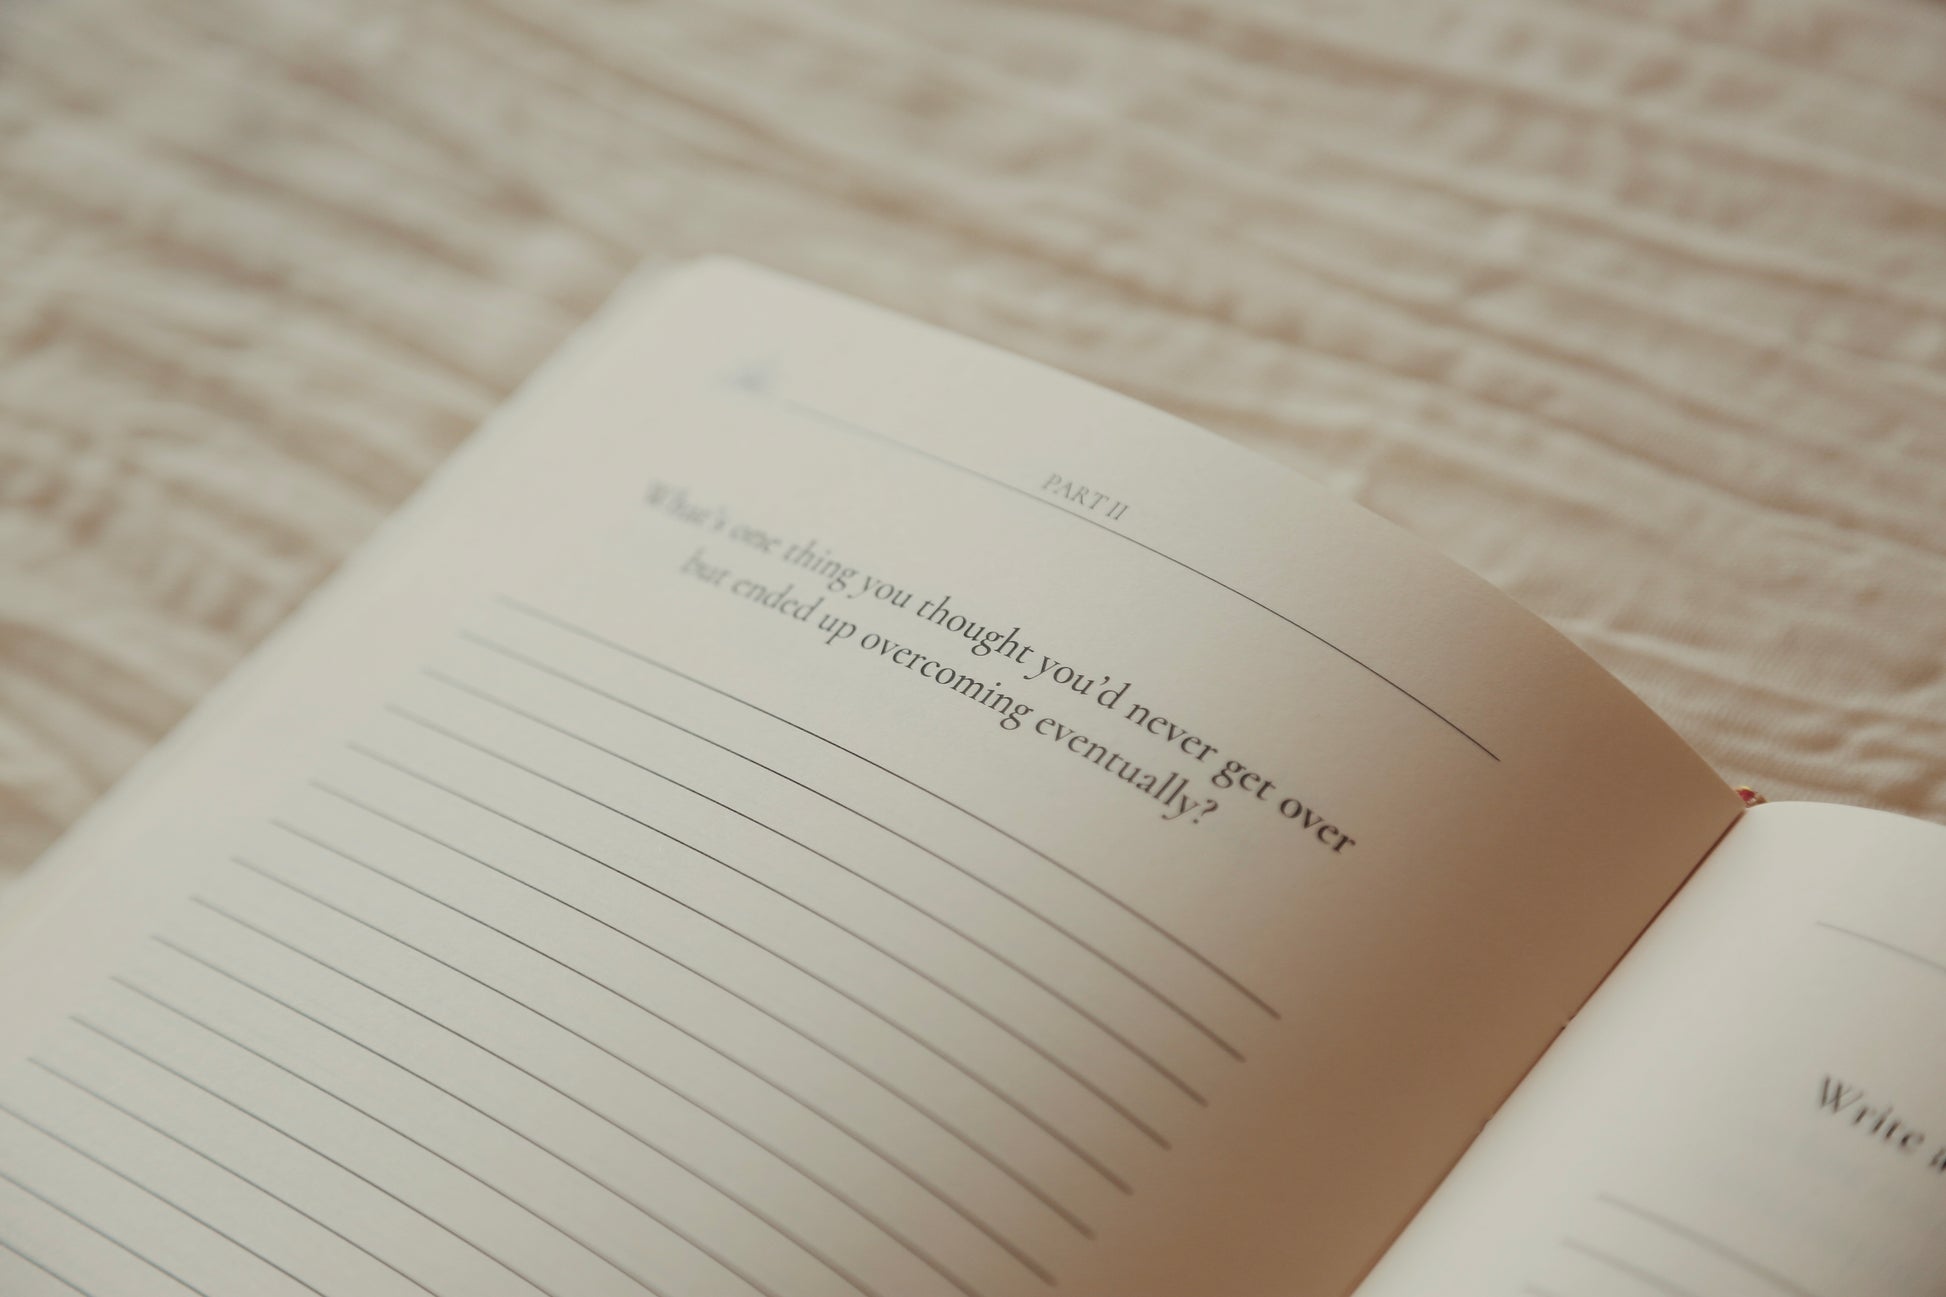 PART II
What's one thing you thought you'd never get over
but ended up overcoming eventually?
Write